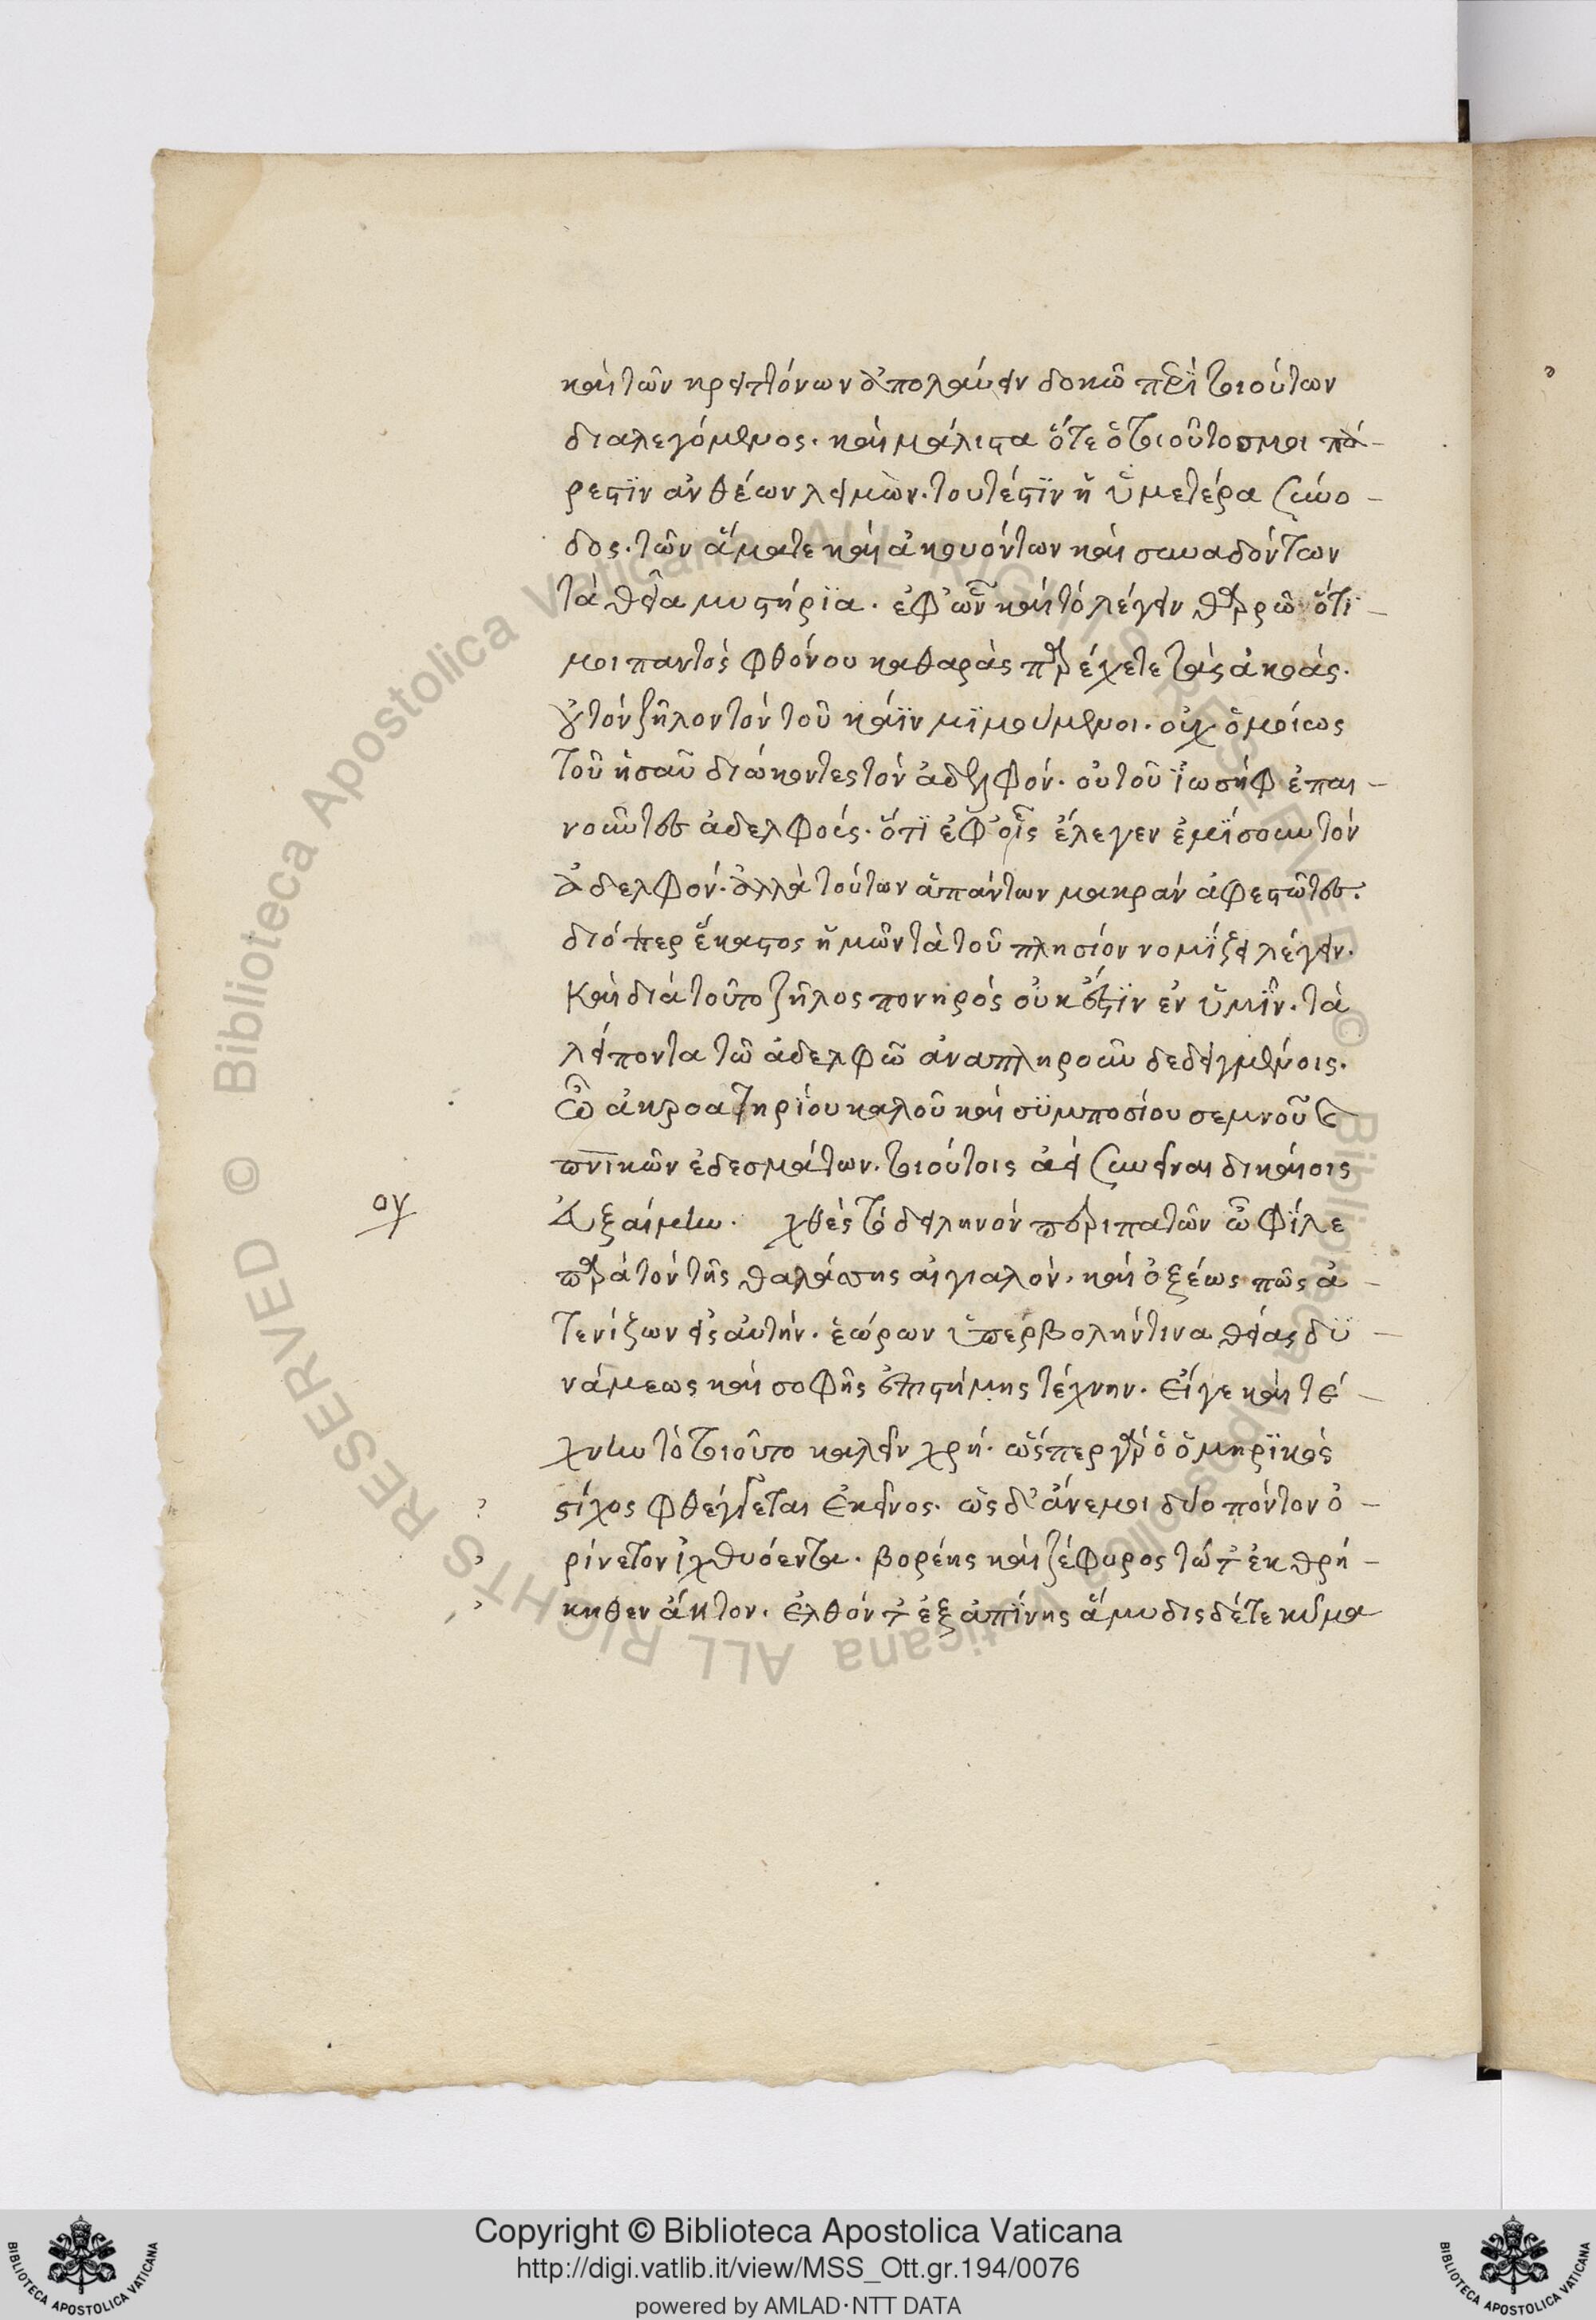 καὶ τῶν κρειττόνων ἀπολαύειν δοκῶ περὶ τοιούτων
διαλεγόμενος. καὶ μάλιστα ὅτε ὁ τοιοῦτος μοι πά-
ρεστϊν ἀνθέων λειμὼν. τουτέστϊν ἡ ὑμετέρα σύνο-
δος. τῶν ἅμα τε καὶ ἀκουόντων καὶ συναδόντων
τὰ θεῖα μυστήρϊα. ἐφ' ὧν καὶ τὸ λέγειν θαρρῶ ὅτϊ-
μοι παντὸς φθόνου καθαρὰς παρέχετε τὰς ἀκοάς.
οὐ τὸν ζῆλον τὸν τοῦ κάϊν μϊμούμενοι. οὐχ ὁμοίως
τοῦ ἠσαῦ διώκοντες τὸν ἀδελφόν. οὐ τοῦ ϊωσὴφ ἐπαι-
νοῦντες ἀδελφούς. ὅτϊ ἐφ' οἷς ἔλεγεν ἐμΐσουν τὸν
ἀδελφόν. ἀλλὰ τούτων ἁπάντων μακρὰν ἀφεστῶτες.
διόπερ ἕκαστος ἡμῶν τὰ τοῦ πλησίον νομΐζει λέγειν.
Καὶ διὰ τοῦτο ζῆλος πονηρὸς οὐκ ἔστϊν ἐν ὑμῖν. τὰ
λείποντα τῶ ἀδελφῶ ἀναπληροῦν δεδειγμένοις.
Ὢ ἀκροατηρΐου καλοῦ καὶ σϋμποσίου σεμνοῦ καὶ
πνϊκῶν ἐδεσμάτων. τοιούτοις ἀεὶ συνεῖναι δικαίοις
Δεξαίμην. χθὲς τὸ δειληνὸν περιπατῶν ὦ φΐλε
παρὰ τὸν τῆς θαλάσσης αἰγιαλόν. καὶ ὀξέως πῶς ἀ-
τενίζων εἰς αὐτήν. ἑώρων ὑπερβολήν τινα θείας δϋ-
νάμεως καὶ σοφῆς ἐπιστήμης τέχνην. Εἴγε καὶ τέ-
χνην τὸ τοιοῦτο καλεῖν χρή. ὥσπερ γὰρ ὁ ὁμηρϊκὸς
στίχος φθέγγεται Ἐκεῖνος. ὡς δ' ἄνεμοι δύο πόντον ὀ-
ρίνετον ἰχθυόεντα. βορέης καὶ ζέφυρος τώτ ἐκ θρή-
κηθεν ἄητον. ἐλθόντ ἐξαπίνης ἄμυδις δέ τε κῦμα
ογ
Copyright © Biblioteca Apostolica Vaticana
http://digi.vatlib.it/view/MSS_Ott.gr.194/0076
powered by AMLAD·NTT DATA